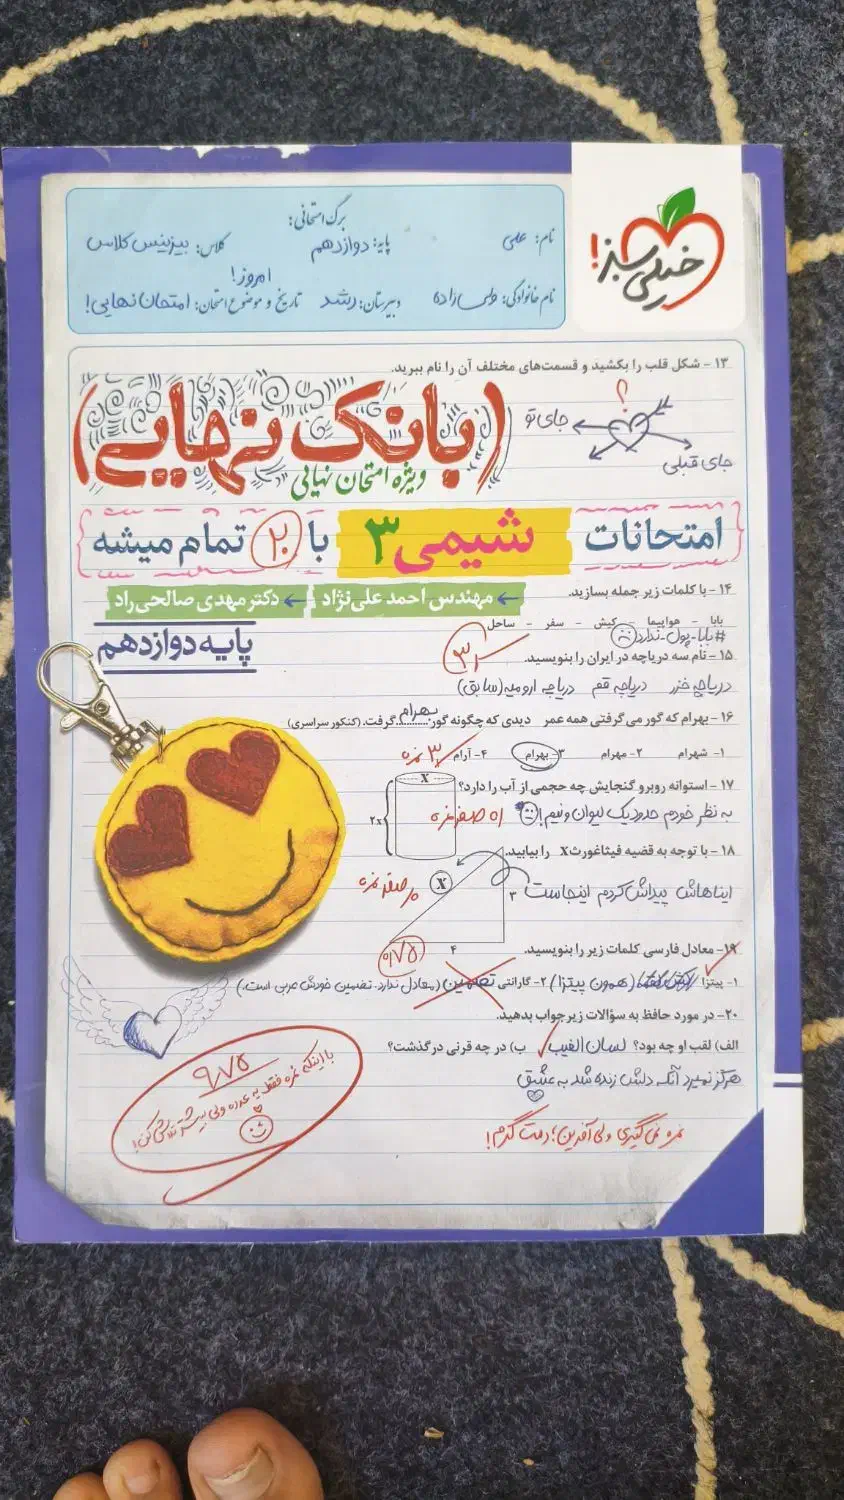 خیلی سبز!
برگ امتحانی:
نام: علی
پایه: دوازدهم
کلاس: بیزینس کلاس
نام خانوادگی: ولی‌زاده
دبیرستان: رشد
تاریخ و موضوع امتحان: امروز! امتحان نهایی!
۱۳ - شکل قلب را بکشید و قسمت‌های مختلف آن را نام ببرید.
؟
جای تو
جای قبلی
(بانک نهایی)
ویژه امتحان نهایی
امتحانات شیمی ۳ با ۲۰ تمام میشه
۱۴ - با کلمات زیر جمله بسازید.
مهندس احمد علی‌نژاد دکتر مهدی صالحی‌راد
بابا - هواپیما - کیش - سفر - ساحل
#بابا_پول_ندارد
پایه دوازدهم
۱۵ - نام سه دریاچه در ایران را بنویسید.
۳
دریاچه خزر دریاچه قم دریاچه ارومیه (سابق)
۱۶ - بهرام که گور می‌گرفتی همه عمر دیدی که چگونه گور بهرام گرفت. (کنکور سراسری)
۱- شهرام ۲- مهرام ۳- بهرام ۴- آرام
۳ نمره
۱۷ - استوانه روبرو گنجایش چه حجمی از آب را دارد؟
X
۲x
به نظر خودم حدود یک لیوان و نیم!
اه صفر نمره
۱۸ - با توجه به قضیه فیثاغورث X را بیابید.
ایناهاش پیداش کردم اینجاست
X
۳
۴
صفر نمره
۰/۷۵
۱۹- معادل فارسی کلمات زیر را بنویسید.
۱- پیتزا (همون پیتزا) ۲- گارانتی تضمین (معادل ندارد. تضمین خودش عربی است.)
۲۰- در مورد حافظ به سؤالات زیر جواب بدهید.
الف) لقب او چه بود؟ لسان الغیب ب) در چه قرنی درگذشت؟
هرگز نمیرد آنکه دلش زنده شد به عشق
نمره نمی‌گیری ولی آفرین؛ دمت گرم!
۹/۷۵
با اینکه نمره فقط یه عدده ولی بیشتر تلاش کن!